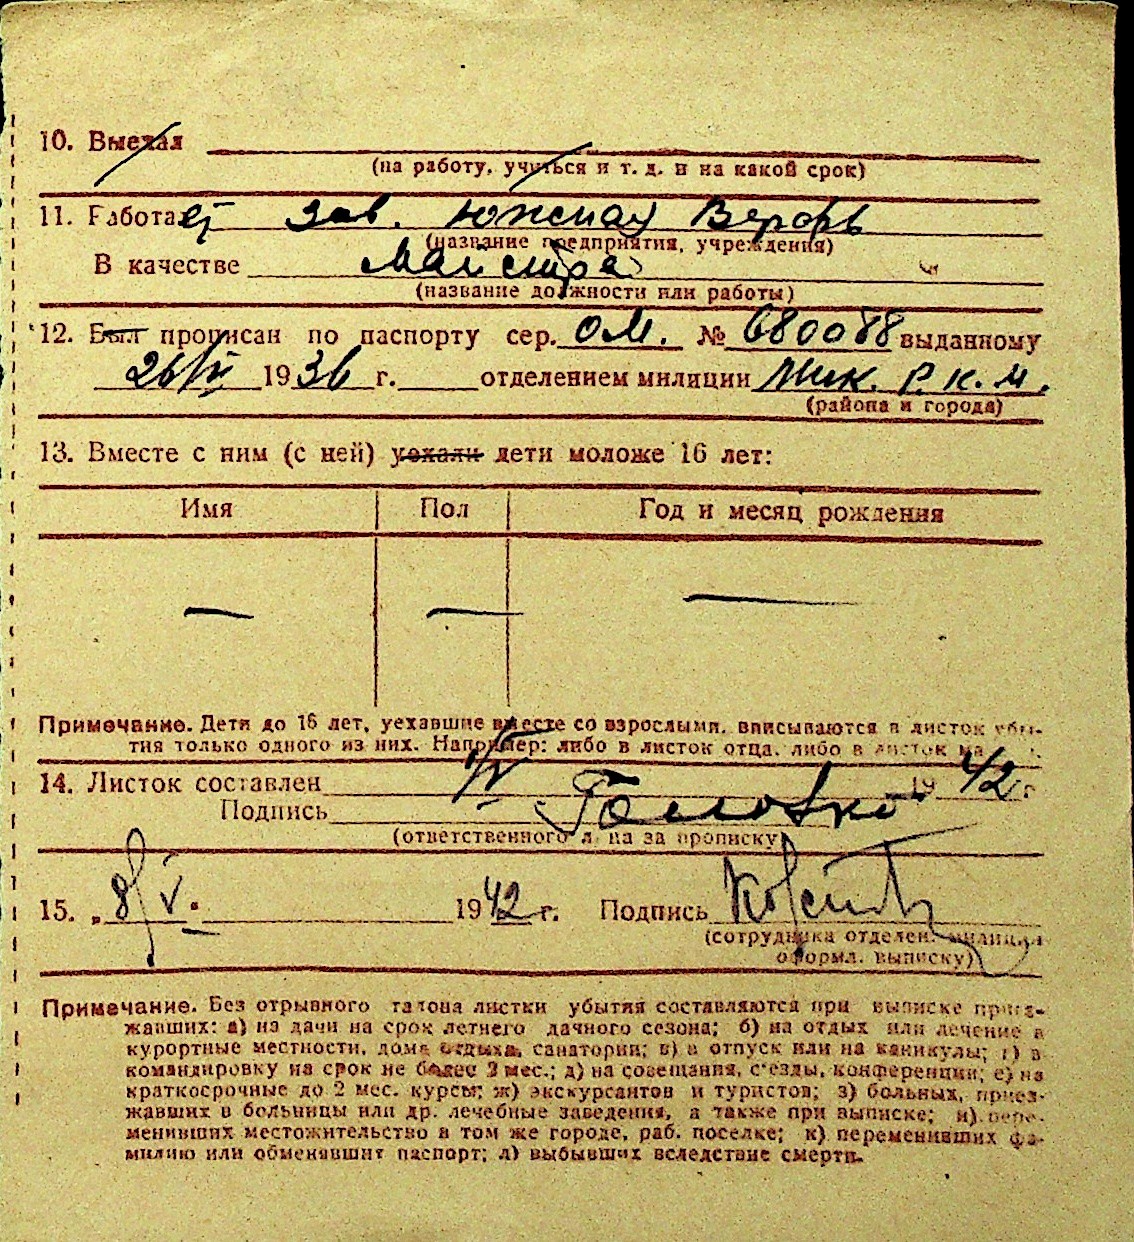 10. Выехал
(на работу, учиться и т. д. и на какой срок)
11. Работает зав. Южная Верфь
(название предприятия, учреждения)
В качестве Майстра
(название должности или работы)
12. Был прописан по паспорту сер. ОМ. № 680088 выданному
26/VI 1936 г. отделением милиции Ник. Р.К.М.
(района и города)
13. Вместе с ним (с ней) уехали дети моложе 16 лет:
Имя Пол Год и месяц рождения
— — —
Примечание. Дети до 16 лет, уехавшие вместе со взрослыми, вписываются в листок убы-
тия только одного из них. Например: либо в листок отца, либо в листок
14. Листок составлен 1/V 1942 г
Подпись Головко
(ответственного лица за прописку)
15. „8/V. 1942 г. Подпись
(сотрудника отделен. милиции
оформл. выписку)
Примечание. Без отрывного талона листки убытия составляются при выписке приез-
жавших: а) на дачи на срок летнего дачного сезона; б) на отдых или лечение в
курортные местности, дома отдыха, санатории; в) в отпуск или на каникулы; г) в
командировку на срок не более 2 мес.; д) на совещания, съезды, конференции; е) на
краткосрочные до 2 мес. курсы; ж) экскурсантов и туристов; з) больных, приез-
жавших в больницы или др. лечебные заведения, а также при выписке; и) пере-
менивших местожительство в том же городе, раб. поселке; к) переменивших фа-
милию или обменявшит паспорт; л) выбывших вследствие смерти.